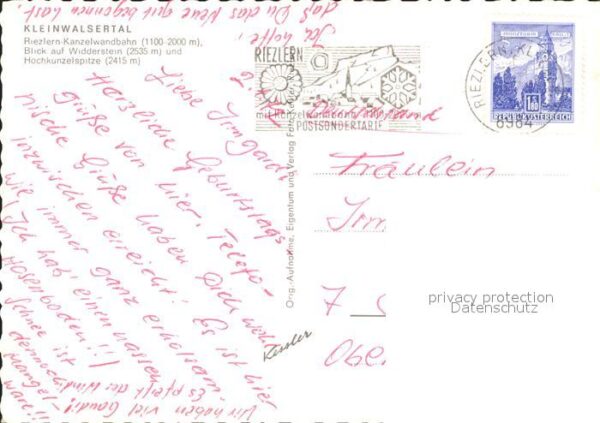 KLEINWALSERTAL
Riezlern-Kanzelwandbahn (1100-2000 m),
Blick auf Widderstein (2535 m) und
Hochkünzelspitze (2415 m)
Liebe Irmgard!
Herzliche Geburtstags-
grüße von hier. Telefo-
nische Grüße haben Dich wohl
inzwischen erreicht! Es ist hier
wie immer ganz erholsam.
Ich hab' einen nassen
Hosenboden!!!
Es pfeift der Wind
Schnee ist
Mangel-
ware!!!
dennoch
Wir haben viel Gaudi!
Ich hoffe,
daß Du das Neue gut begonnen hast.
RIEZLERN
mit Kanzelwandbahn
POSTSONDERTARIF
RIEZLERN
6984
1.80
REPUBLIK ÖSTERREICH
Orig.-Aufnahme, Eigentum und Verlag Foto
Kessler
Deutschland
Fräulein
Irm
7
Obe
privacy protection
Datenschutz